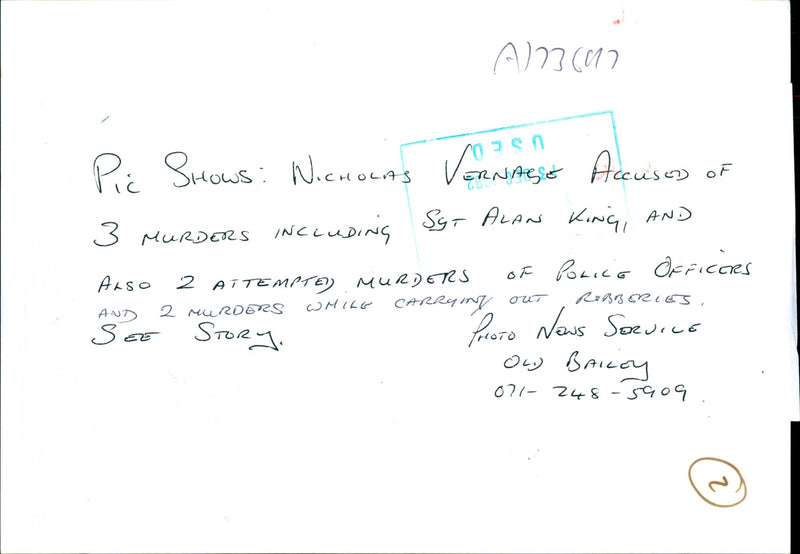 A173697
USED
Pic Shows: Nicholas Vernage Accused of
3 murders including Sgt Alan King, and
Also 2 attempted murders of Police Officers
and 2 murders while carrying out robberies.
See Story.
Photo News Service
Old Bailey
071-248-5909
2